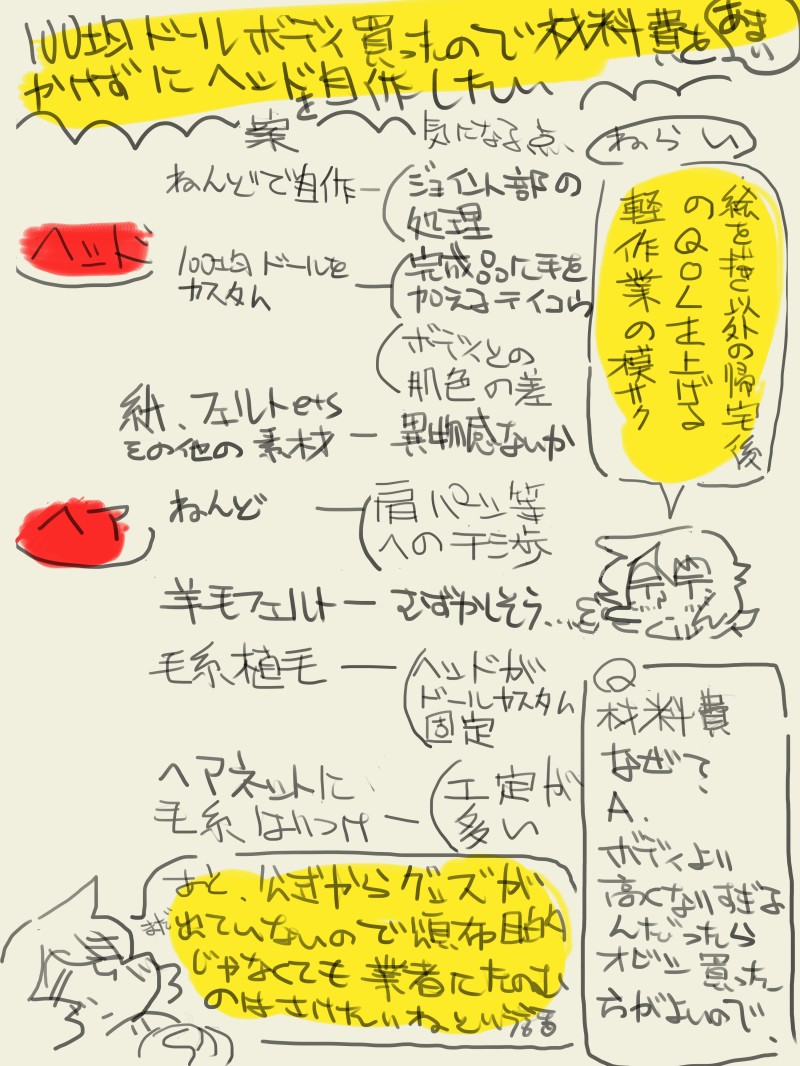 100均ドールボディ買ったので材料費をあまり
かけずにヘッドを自作したい
案
気になる点、
ねらい
ヘッド
ねんどで自作
ジョイント部の
処理
100均ドールを
カスタム
完成品に手を
加えるテイコウ
ボディとの
肌色の差
紙、フェルトets
その他の素材
異物感ないか
ヘア
ねんど
肩パッツ等
への干渉
羊毛フェルト
むずかしそう...
毛糸植毛
ヘッドが
ドールカスタム
固定
ヘアネットに
毛糸はりつけ
工定が
多い
絵を描き以外の帰宅後
のQOLを上げる
軽作業の模サク
Q
材料費
なぜて、
A.
ボディより
高くなりすぎる
んだったら
オビツ買った
ちがよいので
あと、公ぎからグッズが
まだ出ていないので頒布目的
じゃなくても業者にたのむ
のはさけたいねという